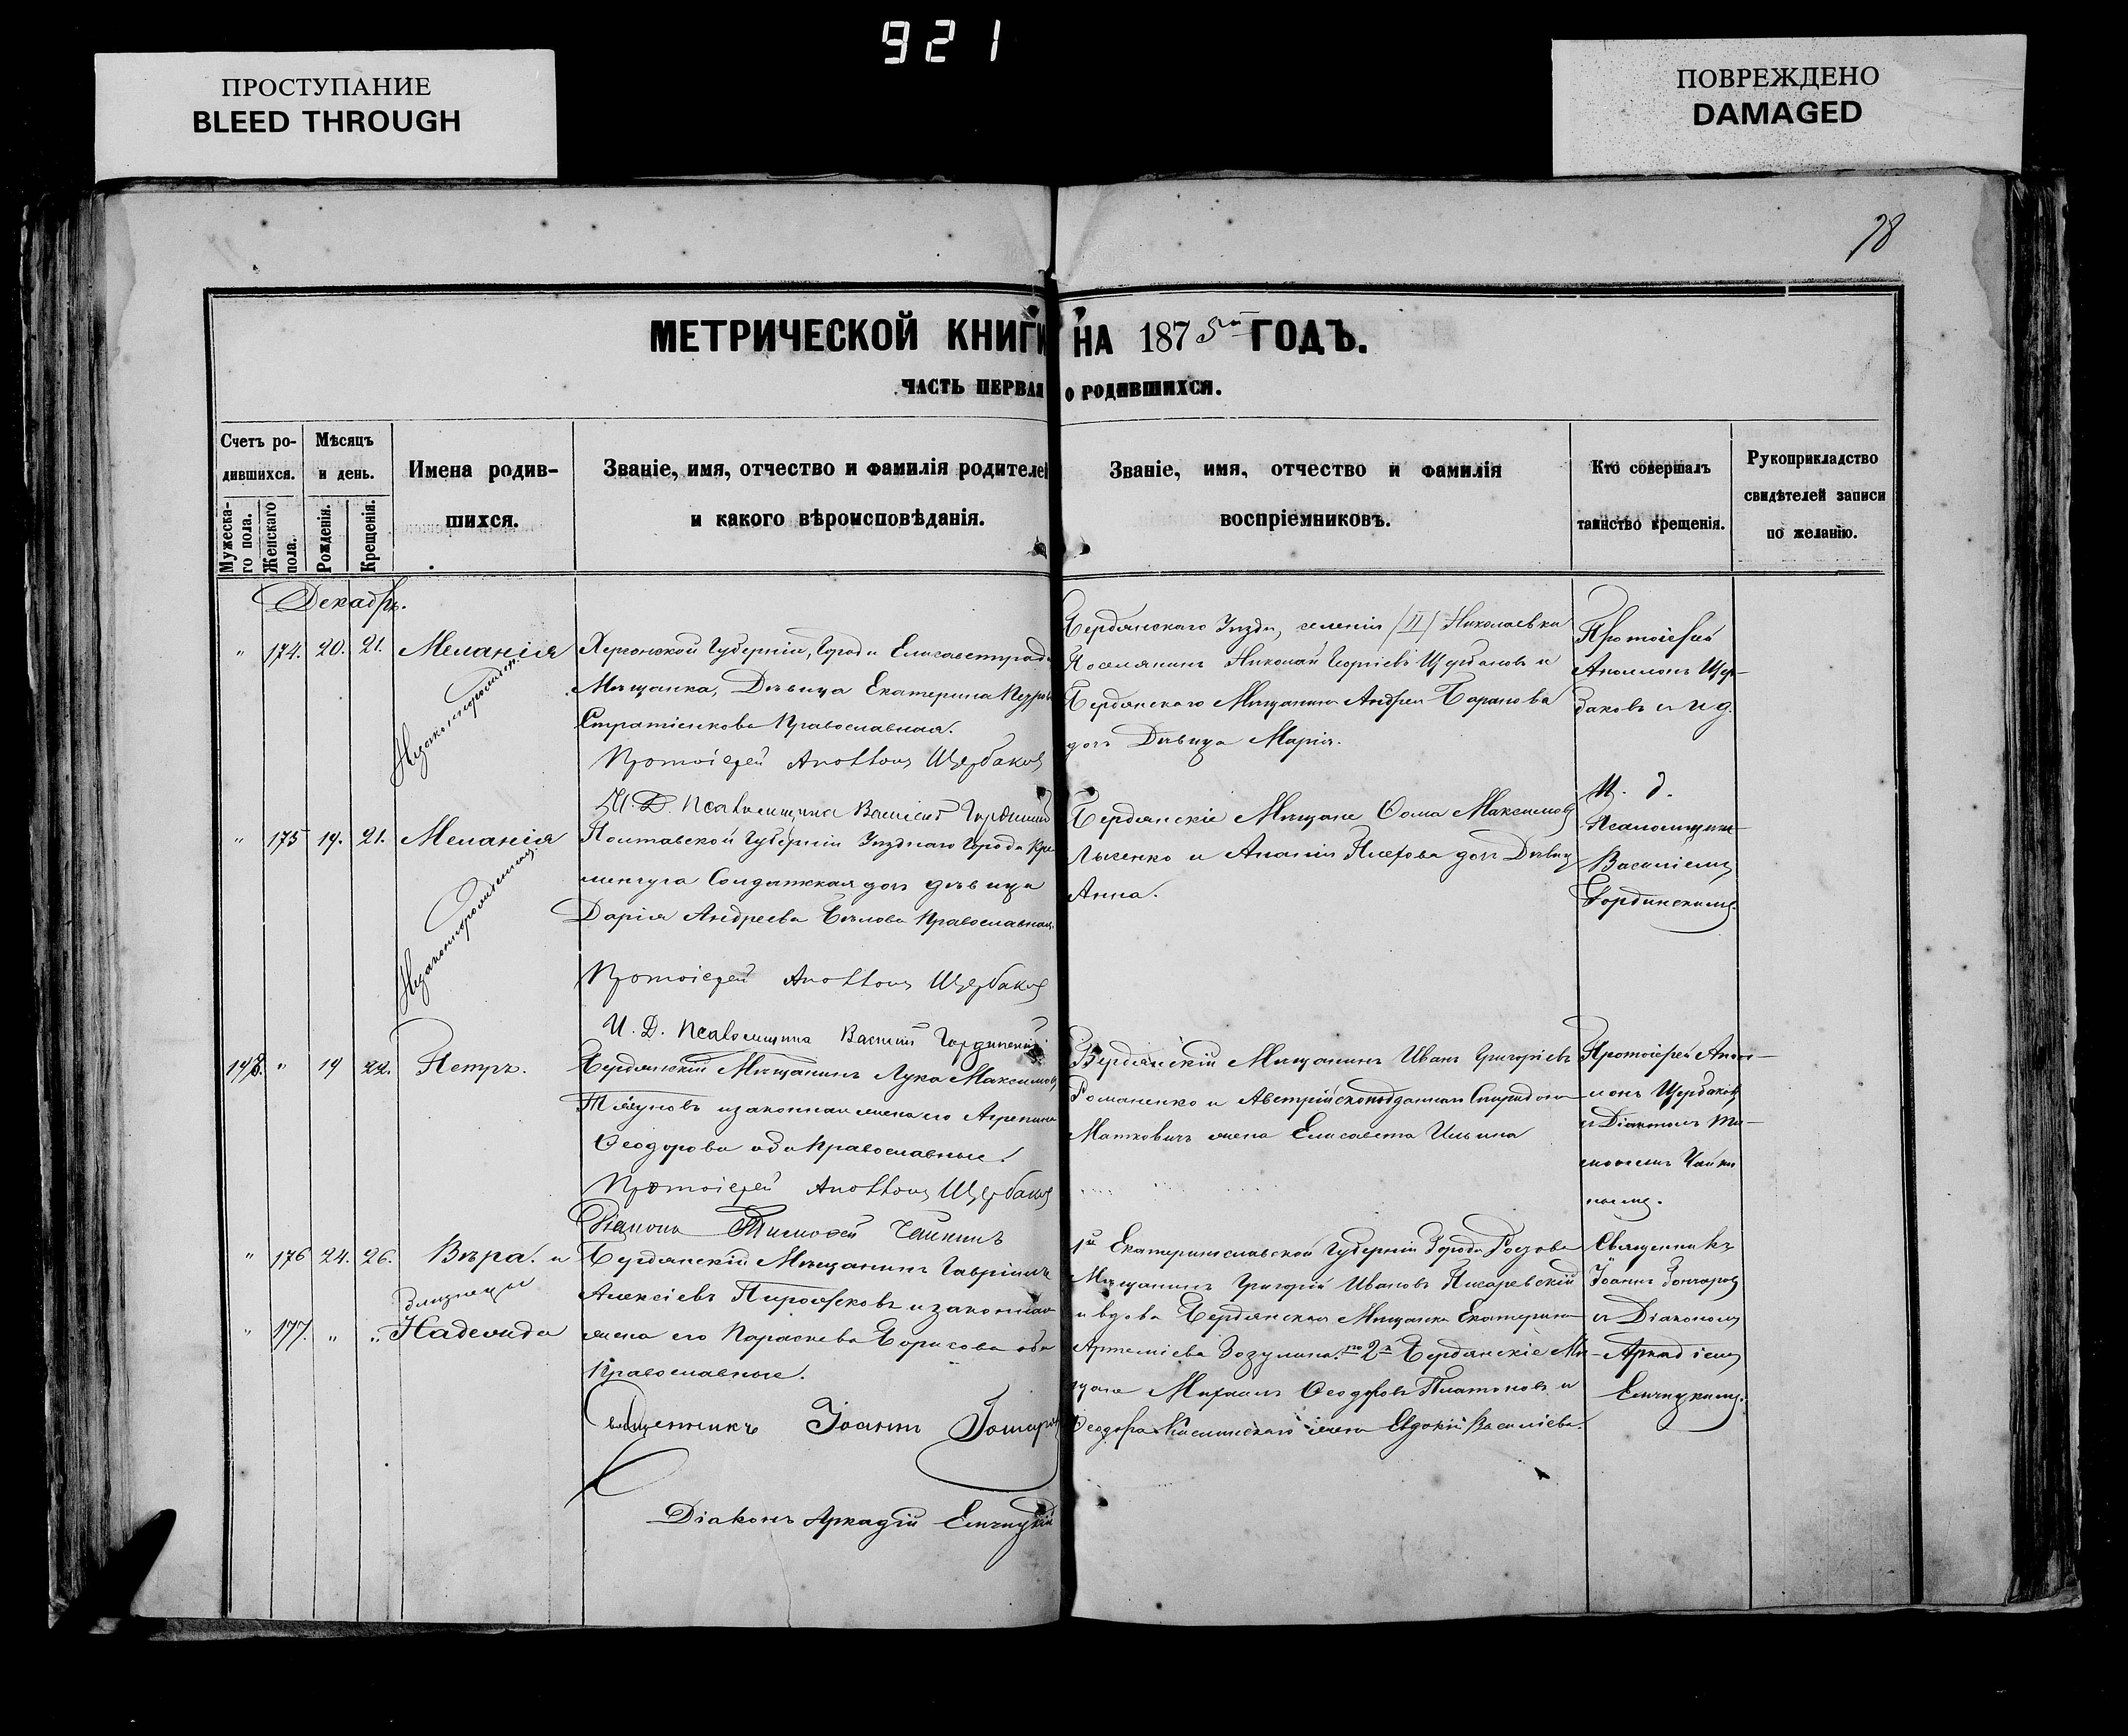 921
ПРОСТУПАНИЕ
BLEED THROUGH
ПОВРЕЖДЕНО
DAMAGED
78
МЕТРИЧЕСКОЙ КНИГИ НА 1875й ГОДЪ.
ЧАСТЬ ПЕРВАЯ О РОДИВШИХСЯ.
Счетъ ро-
дившихся.
Мужеска-
го пола.
Женскаго
пола.
Мѣсяцъ
и день.
Рожденія.
Крещенія.
Имена родив-
шихся.
Званіе, имя, отчество и фамилія родителей
и какого вѣроисповѣданія.
Званіе, имя, отчество и фамилія
воспріемниковъ.
Кто совершалъ
таинство крещенія.
Рукоприкладство
свидѣтелей записи
по желанію.
Декабрь.
" 174. 20. 21. Меланія
Незаконнорожден.
Херсонской Губерніи, Города Елисаветграда
Мѣщанка, Дѣвица Екатерина Петрова
Православная.
Протоіерей Аполлонъ Щербаковъ
И. Д. Псаломщика Василій Гординскій
Бердянскаго Уѣзда, селенія /II/ Николаевки
Поселянинъ Николай Георгіевъ Щербаковъ и
Бердянскаго Мѣщанина Андрея Баранова
дочь Дѣвица Марія.
Протоіерей
Аполлонъ Щер-
баковъ и и д.
" 175 19. 21. Меланія
Незаконнорожденная.
Полтавской Губерніи Уѣзднаго Города Кре-
менчуга Солдатская дочь дѣвица
Дарія Андреева Бѣлова Православная.
Протоіерей Аполлонъ Щербаковъ
И. Д. Псаломщика Василій Гординскій
Бердянскіе Мѣщане Ѳома Максимовъ
Лысенко и Ананія дочь Дѣвица
Анна.
И. д.
Псаломщика
Василіемъ
Гординскимъ.
148. " 19 22. Петръ.
Бердянскій Мѣщанинъ Лука Максимовъ
и законная жена его Агрепина
Ѳеодорова оба Православные.
Протоіерей Аполлонъ Щербаковъ
Діаконъ Тимоѳей Чайкинъ
Бердянскій Мѣщанинъ Иванъ Григорьевъ
Романенко и Австрійскоподданнаго Спиридона
Матковичъ жена Елисавета Ильина
Протоіерей Апол-
лонъ Щербаковъ
и Діакономъ Ти-
моѳеемъ Чайки-
нымъ.
" 176 24. 26. Вѣра. и
близнецы
" 177. " " Надежда
Бердянскій Мѣщанинъ Гавріилъ
Алексіевъ и законная
жена его Параскева Борисова оба
Православные.
Священникъ Іоаннъ Гончаровъ
Діаконъ Аркадій
1й Екатеринославской Губерніи Города Ростова
Мѣщанинъ Григорій Ивановъ Писаревскій
и вдова Бердянская Мѣщанка Екатерина
Артеміева Зозулина. 2й Бердянскіе Мѣ-
щане Михаилъ Ѳеодоровъ Платоновъ и
Ѳеодора жена Евдокія Василіева.
Священникъ
Іоаннъ Гончаровъ
и Діакономъ
Аркадіемъ